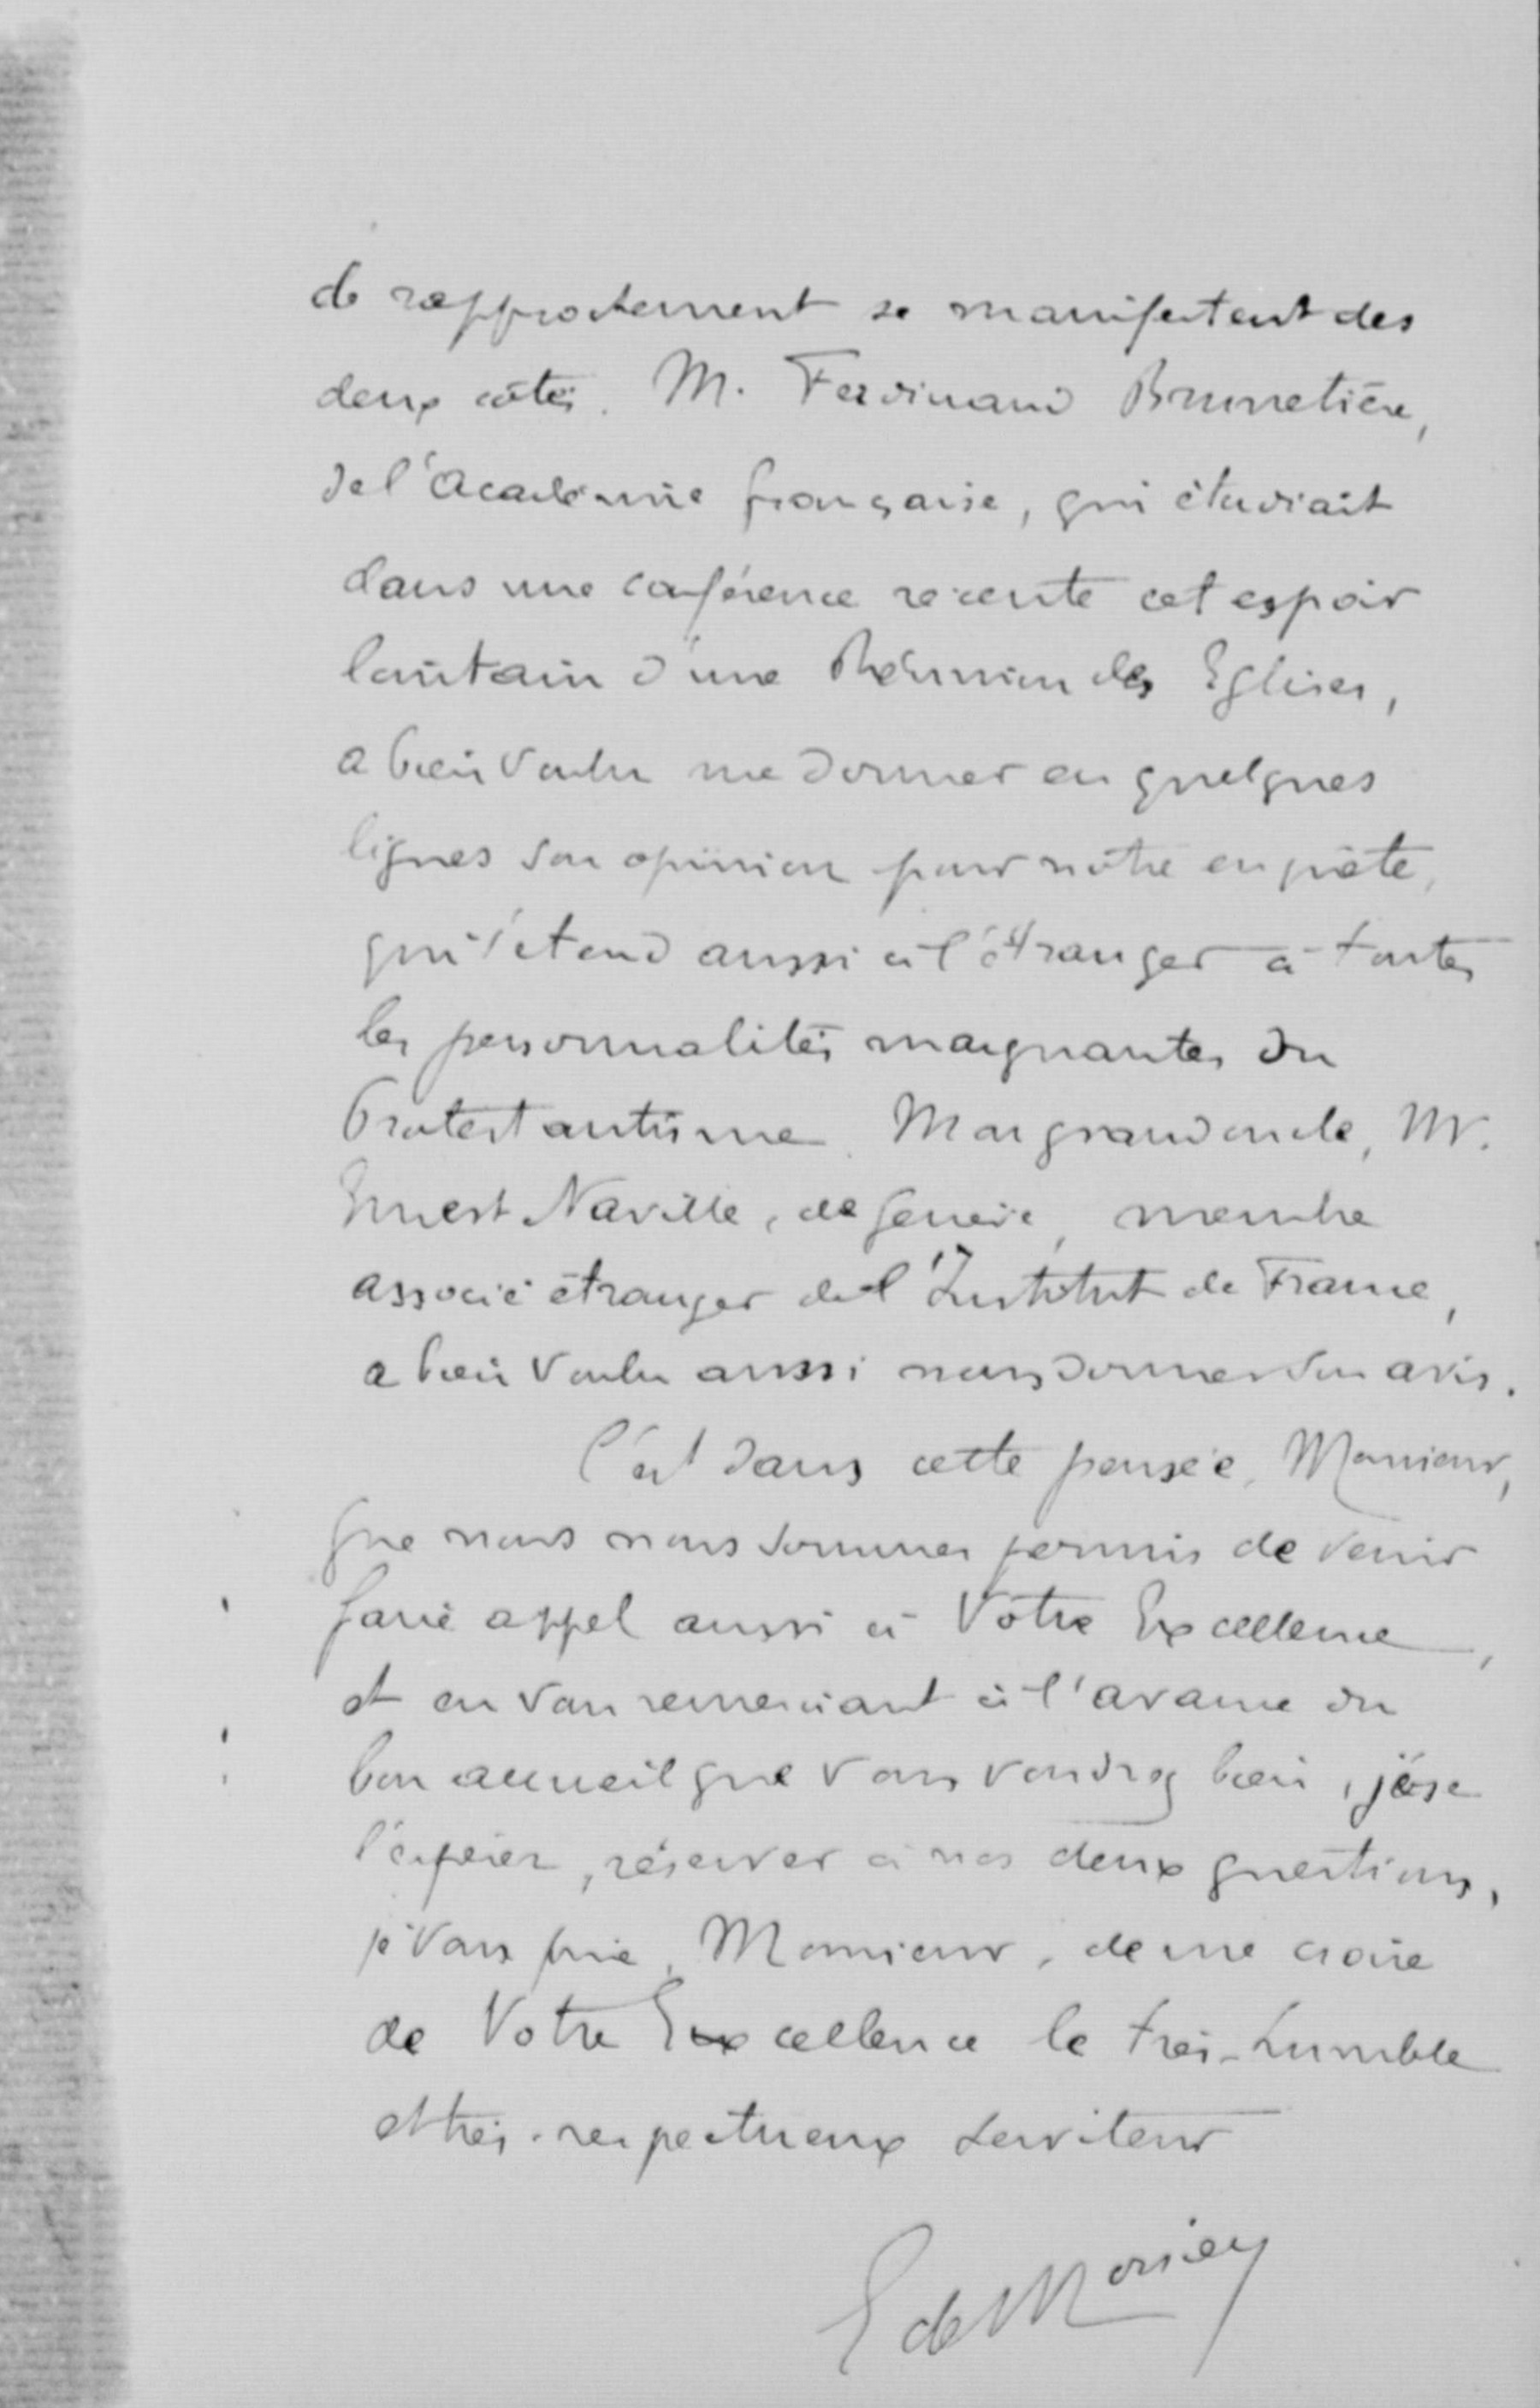 de rapprochement se manifestent des
deux côtés. M. Ferdinand Brunetière,
de l'Académie française, qui étudiait
dans une conférence récente cet espoir
lointain d'une Réunion des Eglises,
a bien voulu me donner en quelques
lignes son opinion pour notre enquête,
qui s'étend aussi à l'étranger à toutes
les personnalités marquantes du
Protestantisme. Mon grand oncle, Mr.
Ernest Naville, de Genève, membre
associé étranger de l'Institut de France,
a bien voulu aussi nous donner son avis.
C'est dans cette pensée, Monsieur,
que nous nous sommes permis de venir
faire appel aussi à Votre Excellence,
et en vous remerciant à l'avance du
bon accueil que vous voudrez bien, j'ose
l'espérer, réserver à nos deux questions,
je vous prie, Monsieur, de me croire
de Votre Excellence le très-humble
et très-respectueux serviteur
E de Morsier